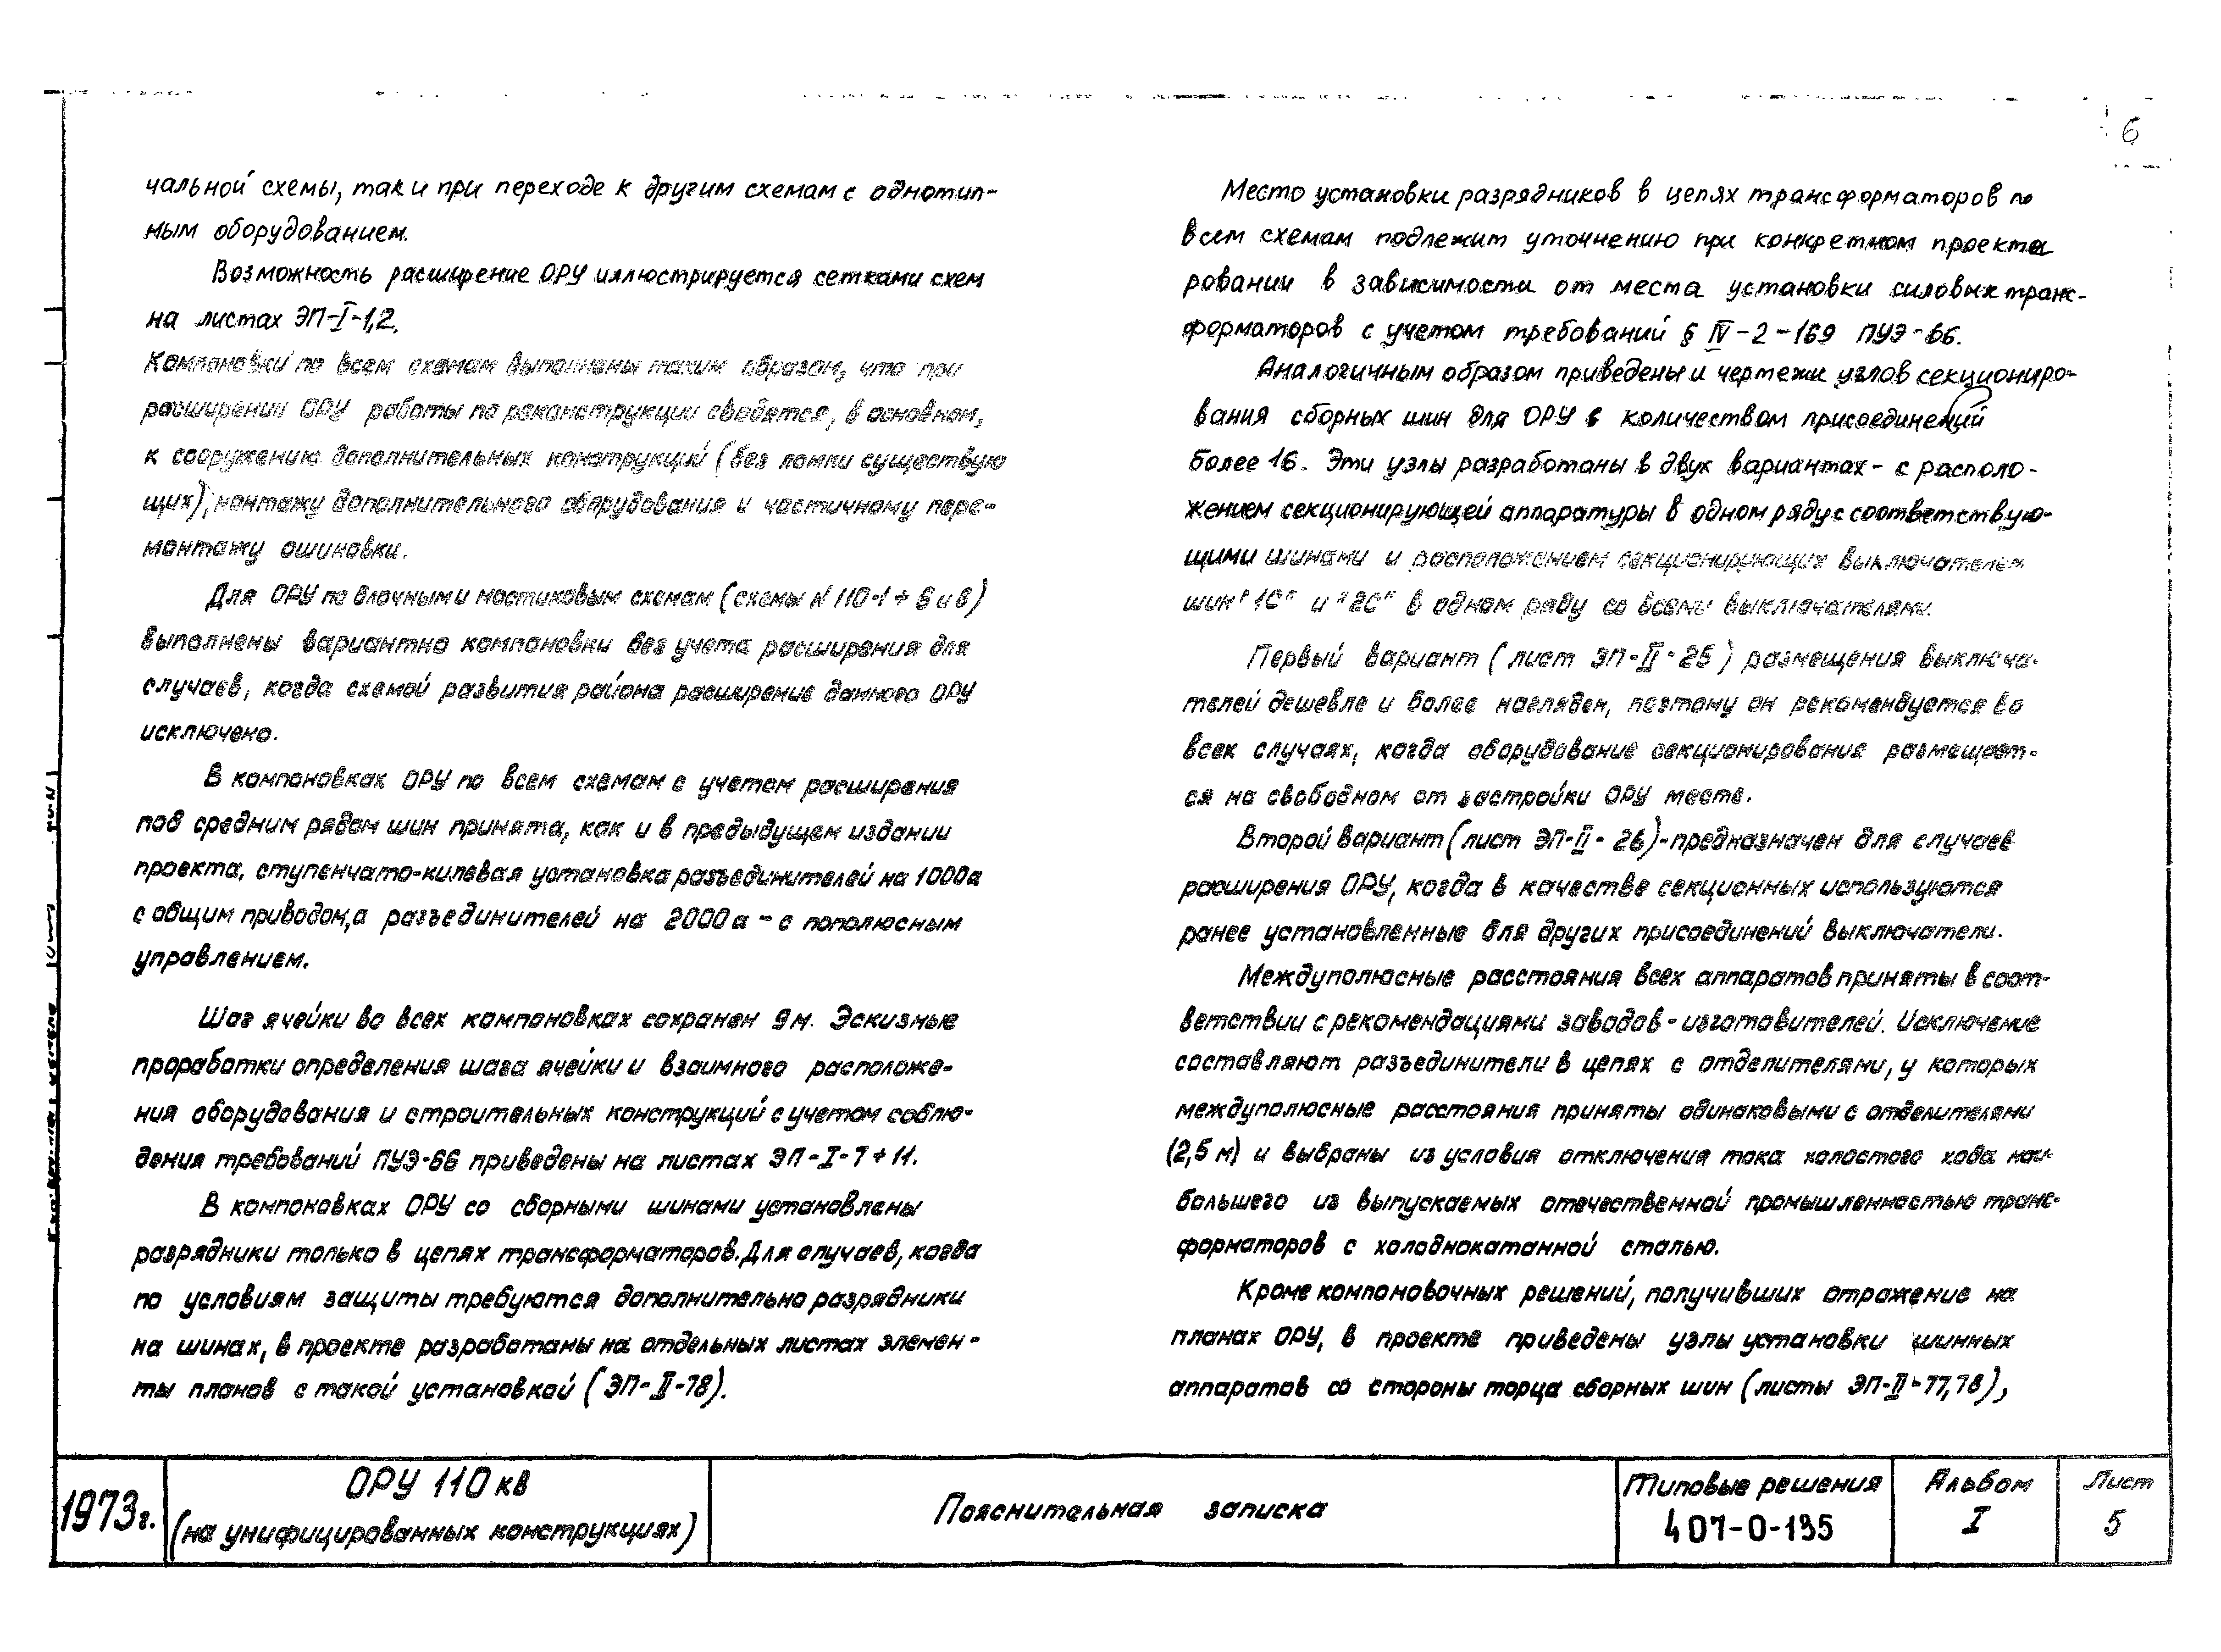 6
чальной схемы, так и при переходе к другим схемам с однотип-
ным оборудованием.
Возможность расширение ОРУ иллюстрируется сетками схем
на листах ЭП-I-1,2.
Компоновки по всем схемам выполнены таким образом, что при
расширении ОРУ работы по реконструкции сводятся, в основном,
к сооружению дополнительных конструкций (без ломки существую
щих), монтажу дополнительного оборудования и частичному пере-
монтажу ошиновки.
Для ОРУ по блочным и мостиковым схемам (схемы N 110-1÷6 и 8)
выполнены вариантно компоновки без учета расширения для
случаев, когда схемой развития района расширение данного ОРУ
исключено.
В компоновках ОРУ по всем схемам с учетом расширения
под средним рядом шин принята, как и в предыдущем издании
проекта, ступенчато-килевая установка разъединителей на 1000а
с общим приводом, а разъединителей на 2000а - с пополюсным
управлением.
Шаг ячейки во всех компоновках сохранен 9м. Эскизные
проработки определения шага ячейки и взаимного расположе-
ния оборудования и строительных конструкций с учетом соблю-
дения требований ПУЭ-66 приведены на листах ЭП-I-7÷11.
В компоновках ОРУ со сборными шинами установлены
разрядники только в цепях трансформаторов. Для случаев, когда
по условиям защиты требуются дополнительно разрядники
на шинах, в проекте разработаны на отдельных листах элемен-
ты планов с такой установкой (ЭП-II-78).
Место установки разрядников в цепях трансформаторов по
всем схемам подлежит уточнению при конкретном проекти
ровании в зависимости от места установки силовых транс-
форматоров с учетом требований § IV-2-169 ПУЭ-66.
Аналогичным образом приведены и чертежи узлов секциониро-
вания сборных шин для ОРУ с количеством присоединений
более 16. Эти узлы разработаны в двух вариантах - с располо-
жением секционирующей аппаратуры в одном ряду с соответствую-
щими шинами и расположением секционирующих выключателей
шин "1С" и "2С" в одном ряду со всеми выключателями.
Первый вариант (лист ЭП-II-25) размещения выключа-
телей дешевле и более нагляден, поэтому он рекомендуется во
всех случаях, когда оборудование секционирования размещает-
ся на свободном от застройки ОРУ месте.
Второй вариант (лист ЭП-II-26)-предназначен для случаев
расширения ОРУ, когда в качестве секционных используются
ранее установленные для других присоединений выключатели.
Междуполюсные расстояния всех аппаратов приняты в соот-
ветствии с рекомендациями заводов-изготовителей. Исключение
составляют разъединители в цепях с отделителями, у которых
междуполюсные расстояния приняты одинаковыми с отделителями
(2,5 м) и выбраны из условия отключения тока холостого хода наи-
большего из выпускаемых отечественной промышленностью транс-
форматоров с холоднокатанной сталью.
Кроме компоновочных решений, получивших отражение на
планах ОРУ, в проекте приведены узлы установки шинных
аппаратов со стороны торца сборных шин (листы ЭП-II-77,78),
1973г.
ОРУ 110 кв
(на унифицированных конструкциях)
Пояснительная записка
Типовые решения
407-0-135
Альбом
I
Лист
5